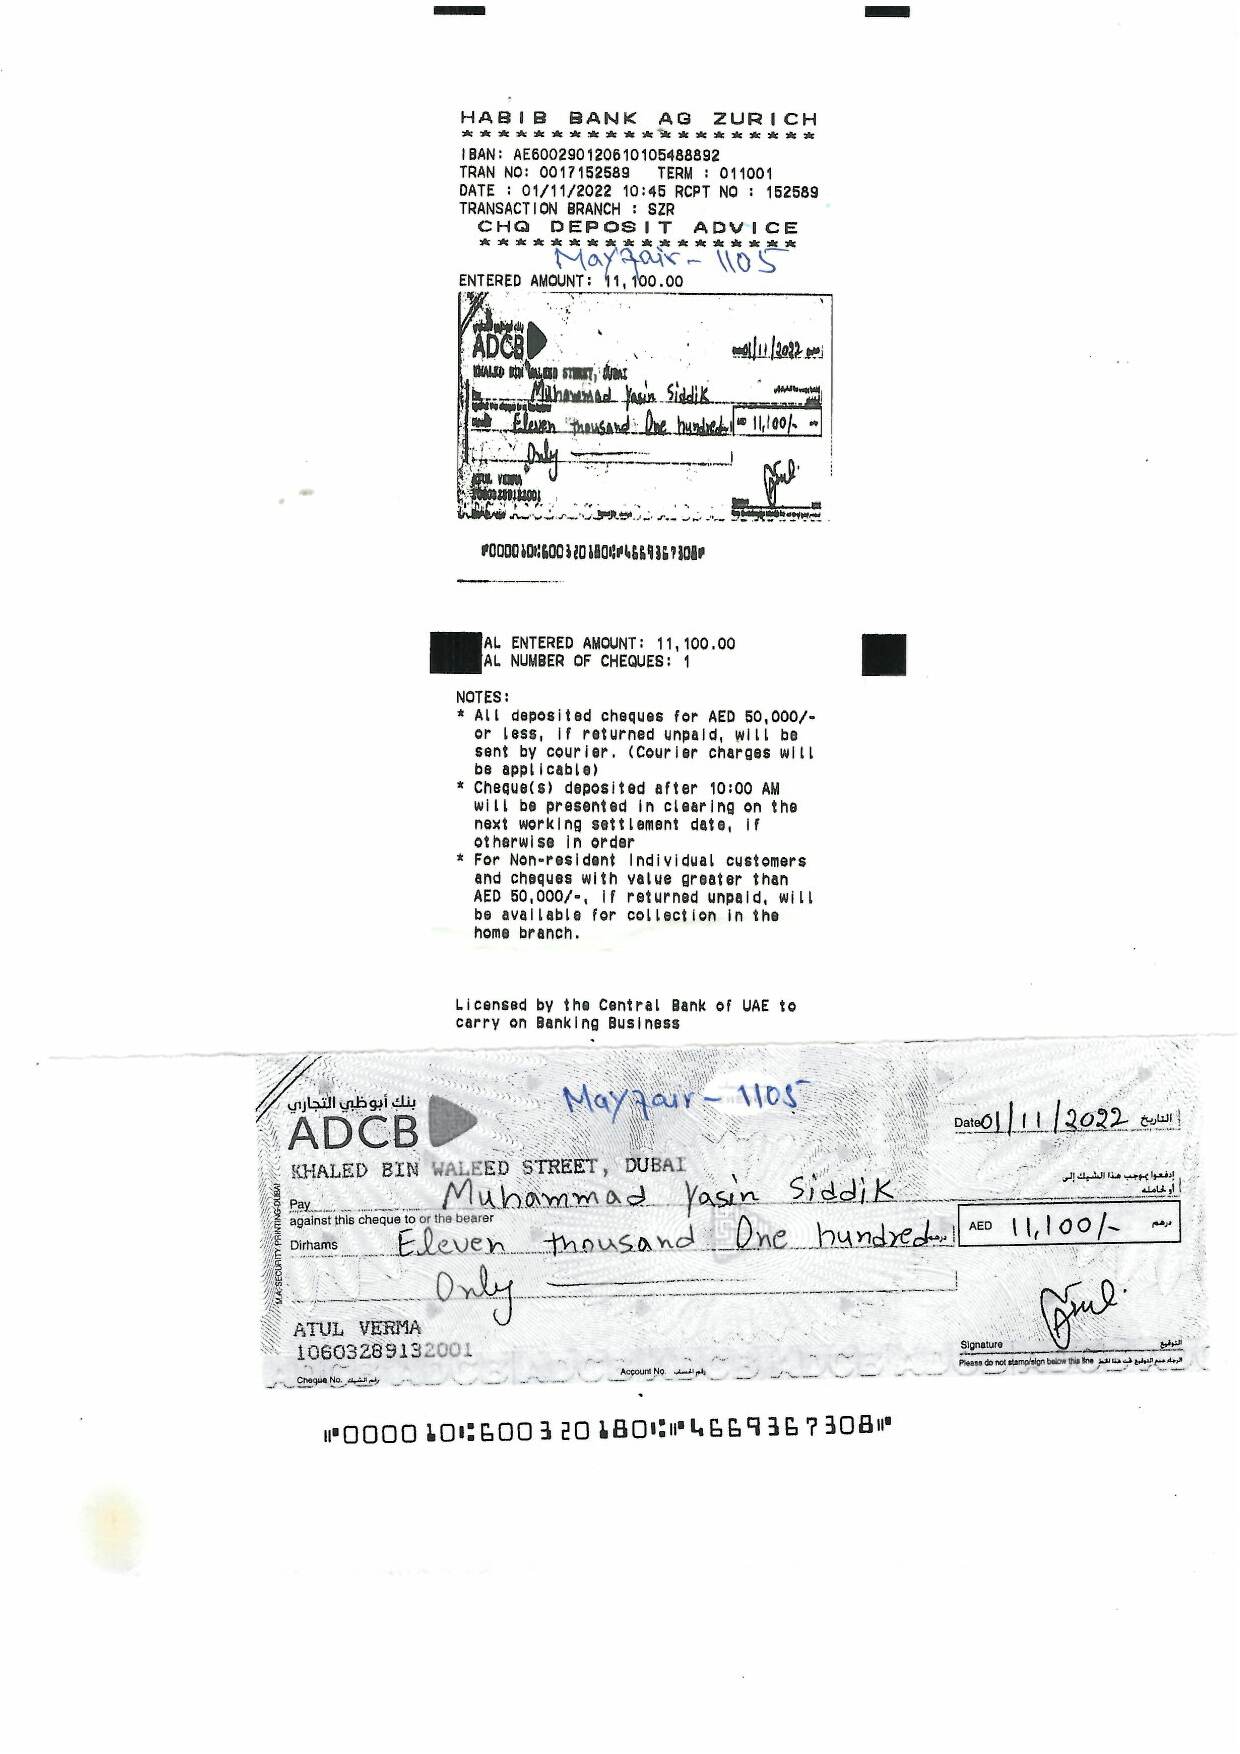 HABIB BANK AG ZURICH
********************
IBAN: AE600290120610105488892
TRAN NO: 0017152589 TERM : 011001
DATE : 01/11/2022 10:45 RCPT NO : 152589
TRANSACTION BRANCH : SZR
CHQ DEPOSIT ADVICE
******************
Mayfair - 1105
ENTERED AMOUNT: 11,100.00
ADCB
01/11/2022
KHALED BIN WALEED STREET, DUBAI
Muhammad Yasin Siddik
Eleven thousand One hundred 11,100/-
Only
ATUL VERMA
⑈000010⑆600320180⑆⑈4669367308⑈
AL ENTERED AMOUNT: 11,100.00
AL NUMBER OF CHEQUES: 1
NOTES:
* All deposited cheques for AED 50,000/-
or less, if returned unpaid, will be
sent by courier. (Courier charges will
be applicable)
* Cheque(s) deposited after 10:00 AM
will be presented in clearing on the
next working settlement date, if
otherwise in order
* For Non-resident Individual customers
and cheques with value greater than
AED 50,000/-, if returned unpaid, will
be available for collection in the
home branch.
Licensed by the Central Bank of UAE to
carry on Banking Business
Mayfair - 1105
بنك أبوظبي التجاري
ADCB
Date 01/11/2022 التاريخ
KHALED BIN WALEED STREET, DUBAI
إدفعوا بموجب هذا الشيك إلى
Pay Muhammad Yasin Siddik أو لحامله
against this cheque to or the bearer
Dirhams Eleven thousand One hundred درهم AED 11,100/- درهم
Only
ATUL VERMA
10603289132001
Signature التوقيع
Please do not stamp/sign below this line
Cheque No. رقم الشيك Account No. رقم الحساب
⑈000010⑆600320180⑆⑈4669367308⑈